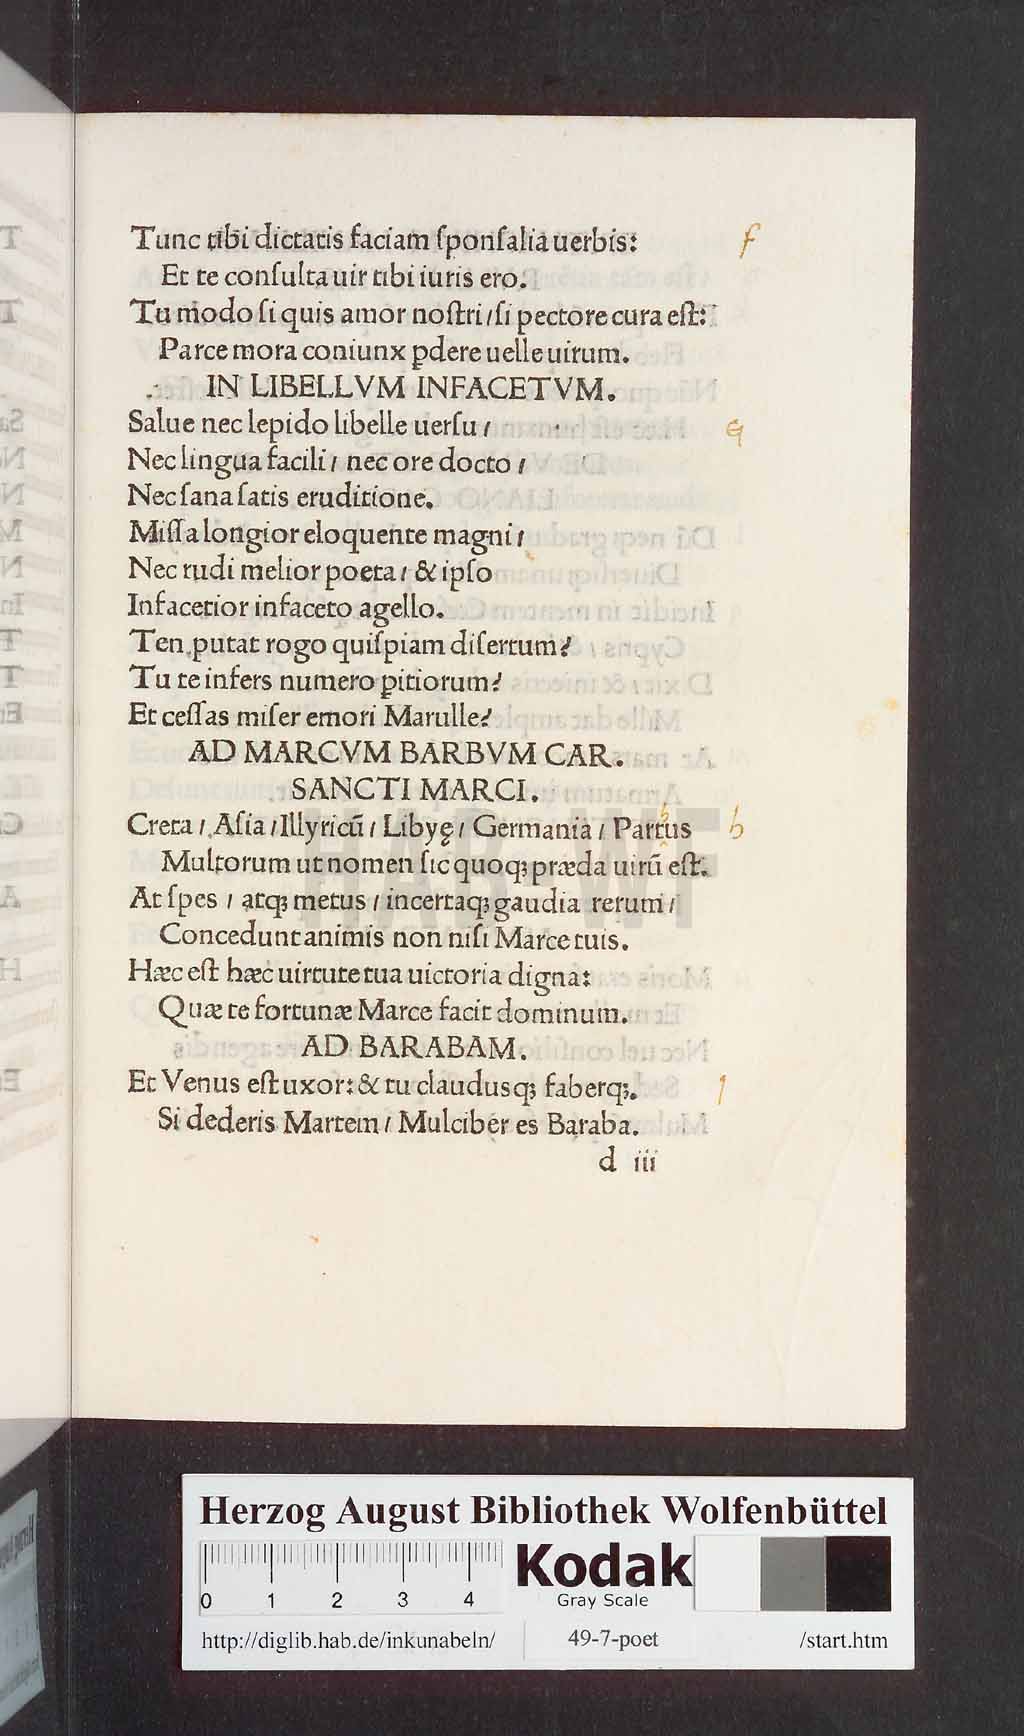 Tunc tibi dictatis faciam ſponſalia uerbis:
f
Et te conſulta uir tibi iuris ero.
Tu modo ſi quis amor noſtri/ſi pectore cura eſt:
Parce mora coniunx pdere uelle uirum.
IN LIBELLVM INFACETVM.
Salue nec lepido libelle uerſu/
Nec lingua facili/ nec ore docto/
Nec ſana ſatis eruditione.
Miſſa longior eloquente magni/
Nec rudi melior poeta/ & ipſo
Infacetior infaceto agello.
Ten putat rogo quiſpiam diſertum?
Tu te infers numero pitiorum?
Et ceſſas miſer emori Marulle?
AD MARCVM BARBVM CAR.
SANCTI MARCI.
Creta/ Aſia/Illyricū/ Libyę/ Germania/ Partus
b
Multorum ut nomen ſic quoq; præda uirū eſt.
At ſpes / atq; metus / incertaq; gaudia rerum/
Concedunt animis non niſi Marce tuis.
Hæc eſt hæc uirtute tua uictoria digna:
Quæ te fortunæ Marce facit dominum.
AD BARABAM.
Et Venus eſt uxor: & tu claudusq; faberq;.
Si dederis Martem/ Mulciber es Baraba.
d iii
HAB-WF
Herzog August Bibliothek Wolfenbüttel
0 1 2 3 4
Kodak
Gray Scale
http://diglib.hab.de/inkunabeln/ 49-7-poet /start.htm